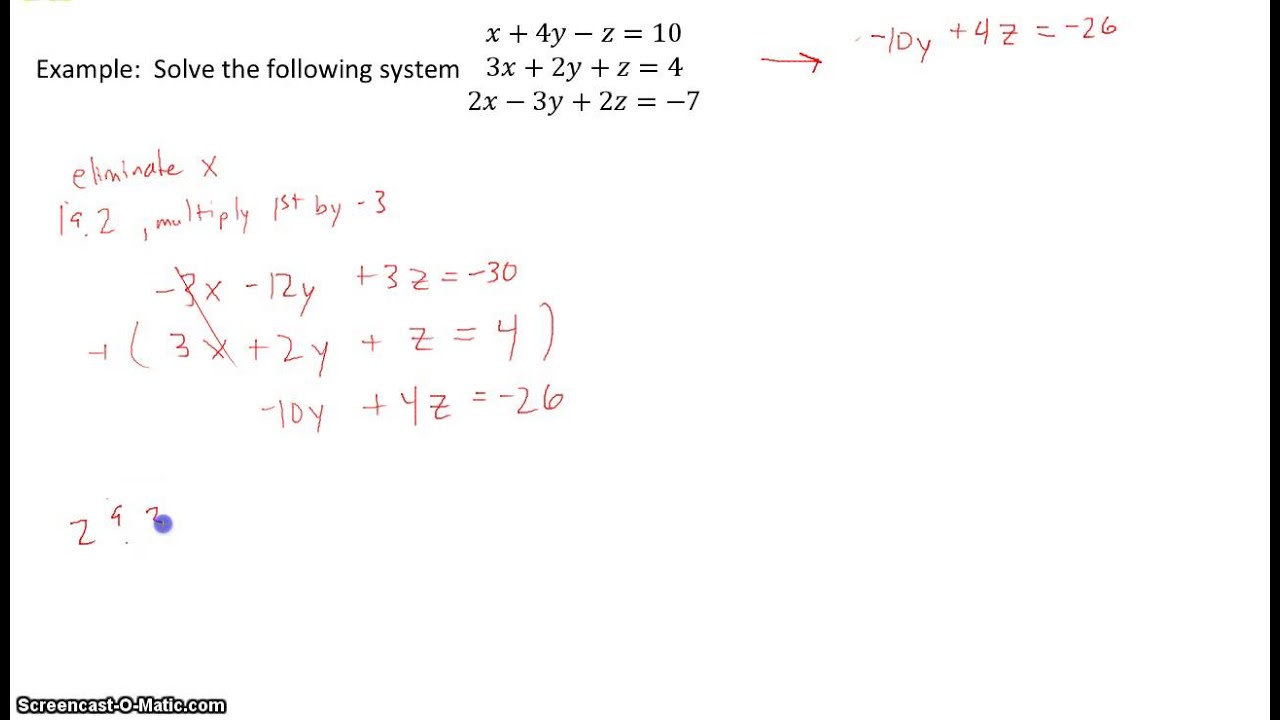 x + 4y − z = 10
Example: Solve the following system 3x + 2y + z = 4
2x − 3y + 2z = −7
→ -10y + 4z = -26
eliminate x
1 & 2, multiply 1st by -3
-3x -12y +3z = -30
+ ( 3x + 2y + z = 4 )
-10y + 4z = -26
2 & 3
Screencast-O-Matic.com